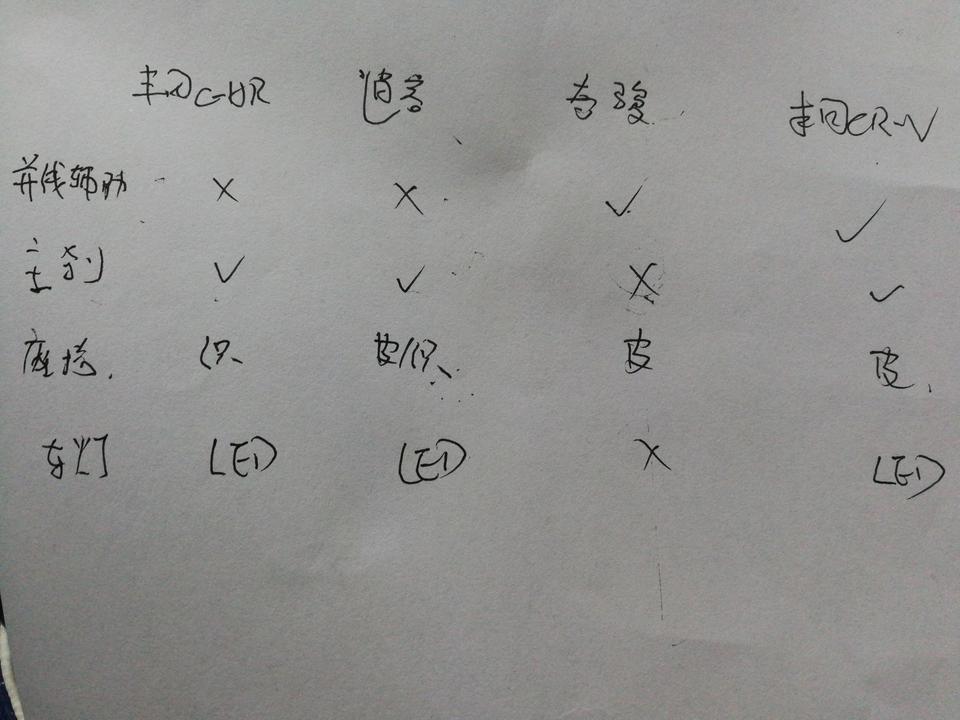 丰田C-HR 逍客 奇骏 丰田CR-V
并线辅助 × × ✓ ✓
主刹 ✓ ✓ × ✓
座椅 仿 皮/仿 皮 皮
车灯 LED LED × LED